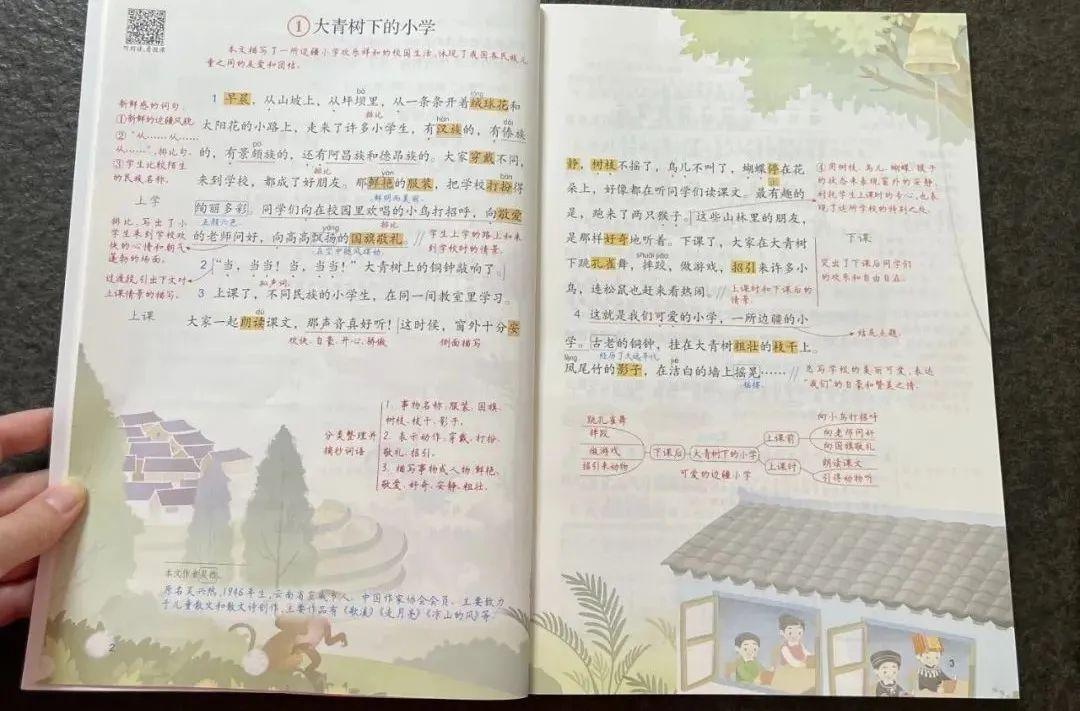 听朗读,看微课
① 大青树下的小学
本文描写了一所边疆小学欢乐祥和的校园生活,体现了我国各民族儿
童之间的友爱和团结。
新鲜感的词句。
①新鲜的边疆风貌。
②“从……从……
从……”,排比句。
③学生比较陌生
的民族名称。
上学
排比,写出了小
学生来到学校欢
快的心情和朝气
蓬勃的场面。
过渡段,引出下文对
上课情景的描写。
上课
1 早晨,从山坡上,从坪坝里,从一条条开着绒球花和
bà
róng
排比
太阳花的小路上,走来了许多小学生,有汉族的,有傣族
hàn
dǎi
的,有景颇族的,还有阿昌族和德昂族的。大家穿戴不同,
pō
排比
来到学校,都成了好朋友。那鲜艳的服装,把学校打扮得
yàn
鲜明而美丽。
绚丽多彩。同学们向在校园里欢唱的小鸟打招呼,向敬爱
五颜六色。
排比
的老师问好,向高高飘扬的国旗敬礼。
yáng
在空中随风摆动。
学生上学的路上和来
到学校时的情景。
2 “当,当当!当,当当!”大青树上的铜钟敲响了。
拟声词。
3 上课了,不同民族的小学生,在同一间教室里学习。
大家一起朗读课文,那声音真好听!这时候,窗外十分安
dú
欢快、自豪、开心、骄傲
侧面描写
分类整理并
摘抄词语
1. 事物名称:服装、国旗、
树枝、枝干、影子。
2. 表示动作:穿戴、打扮、
敬礼、招引。
3. 描写事物或人物:鲜艳、
敬爱、好奇、安静、粗壮。
本文作者吴然。
原名吴兴然,1946年生,云南省宣威市人。中国作家协会会员。主要致力
于儿童散文和散文诗创作,主要作品有《歌溪》《走月亮》《凉山的风》等。
2
静,树枝不摇了,鸟儿不叫了,蝴蝶停在花
朵上,好像都在听同学们读课文。最有趣的
是,跑来了两只猴子。这些山林里的朋友,
是那样好奇地听着。下课了,大家在大青树
下跳孔雀舞、摔跤、做游戏,招引来许多小
shuāi jiāo
鸟,连松鼠也赶来看热闹。
上课时和下课后的
情景。
4 这就是我们可爱的小学,一所边疆的小
学。古老的铜钟,挂在大青树粗壮的枝干上。
经历了久远年代。
凤尾竹的影子,在洁白的墙上摇晃……
fèng
jié
摇摆。
④用树枝、鸟儿、蝴蝶、猴子
的状态来表现窗外的安静,
衬托学生上课时的专心,也表
现了这所学校的特别之处。
下课
突出了下课后同学们
的欢乐和自由自在。
结尾点题。
总写学校的美丽可爱,表达
“我们”的自豪和赞美之情。
跳孔雀舞
摔跤
做游戏
招引来动物
下课后
大青树下的小学
可爱的边疆小学
上课前
上课时
向小鸟打招呼
向老师问好
向国旗敬礼
朗读课文
引得动物听
3